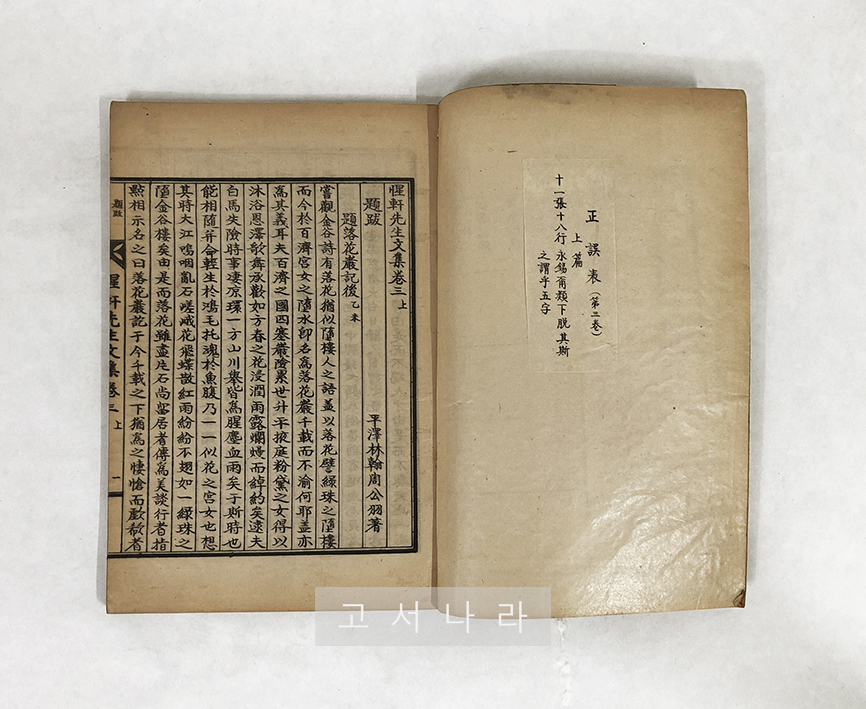 正誤表(第三卷)
上篇
十一張十八行 永錫甭類下脫其斯
之謂乎五字
惺軒先生文集卷三 上
平澤林翰周公羽著
題跋
題落花巖記後 乙未
嘗觀金谷詩有落花猶似墮樓人之語盖以落花譬綠珠之墮樓
而今於百濟宮女之墮水卽名爲落花巖千載而不渝何耶盖亦
爲其義耳夫百濟之國四塞嚴險累世升平掖庭粉黛之女得以
沐浴恩澤歌舞承歡如方春之花浸潤雨露爛熳而綽約矣逮夫
白馬失險時事凄凉環一方山川擧皆爲腥塵血雨矣于斯時也
能相随并命輕生於鴻毛托魂於魚腹乃一一似花之宮女也想
其時大江嗚咽亂石嵯峨花飛蝶散紅雨紛紛不翅如一綠珠之
墮金谷樓矣由是而落花雖盡危石尚留居者傳爲美談行者指
點相示名之曰落花巖訖于今千載之下猶爲之悽愴而歔欷者
題跋
惺軒先生文集卷三 上
一
고서나라